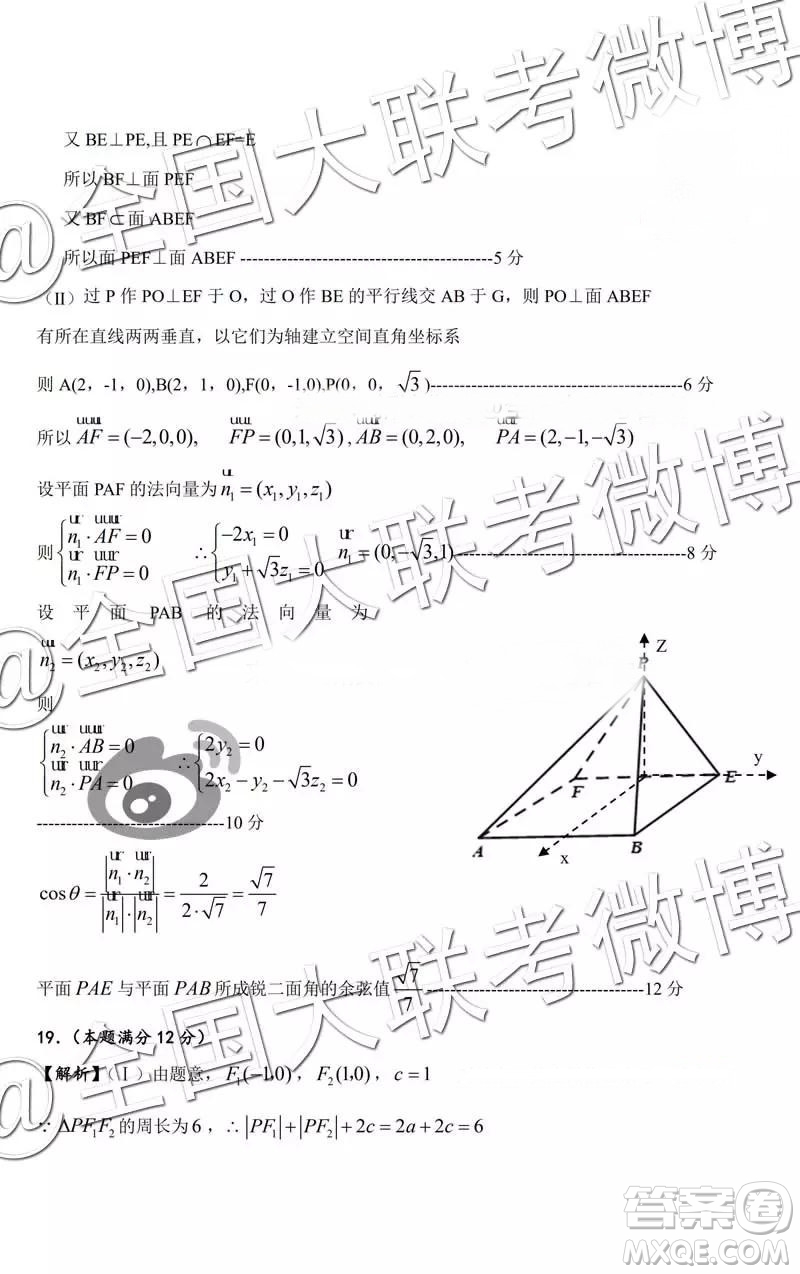 又 BE⊥PE,且 PE∩EF=E
所以 BF⊥面 PEF
又 BF⊂面 ABEF
所以面 PEF⊥面 ABEF -------------------------------------------5 分
（II）过 P 作 PO⊥EF 于 O，过 O 作 BE 的平行线交 AB 于 G，则 PO⊥面 ABEF
有所在直线两两垂直，以它们为轴建立空间直角坐标系
则 A(2, -1, 0),B(2, 1, 0),F(0, -1,0),P(0, 0, √3)-------------------------------------------6 分
所以 AF=(-2,0,0), FP=(0,1,√3), AB=(0,2,0), PA=(2,-1,-√3)
设平面 PAF 的法向量为 n₁=(x₁,y₁,z₁)
则 {n₁·AF=0 n₁·FP=0 ∴{-2x₁=0 y₁+√3z₁=0 n₁=(0,-√3,1)---------------------------------------8 分
设 平 面 PAB 的 法 向 量 为
n₂=(x₂,y₂,z₂)
则
{n₂·AB=0 n₂·PA=0 ∴{2y₂=0 2x₂-y₂-√3z₂=0
--------------------------------10 分
cosθ=|n₁·n₂|/|n₁|·|n₂|=2/2·√7=√7/7
Z
P
y
F
E
A
B
x
平面 PAE 与平面 PAB 所成锐二面角的余弦值 √7/7 -------------------------------------12 分
19.（本题满分 12 分）
【解析】（Ⅰ）由题意，F₁(-1,0)，F₂(1,0)，c=1
∵ΔPF₁F₂的周长为6，∴|PF₁|+|PF₂|+2c=2a+2c=6
@全国大联考微博
@全国大联考微博
答案卷
MXQE.COM